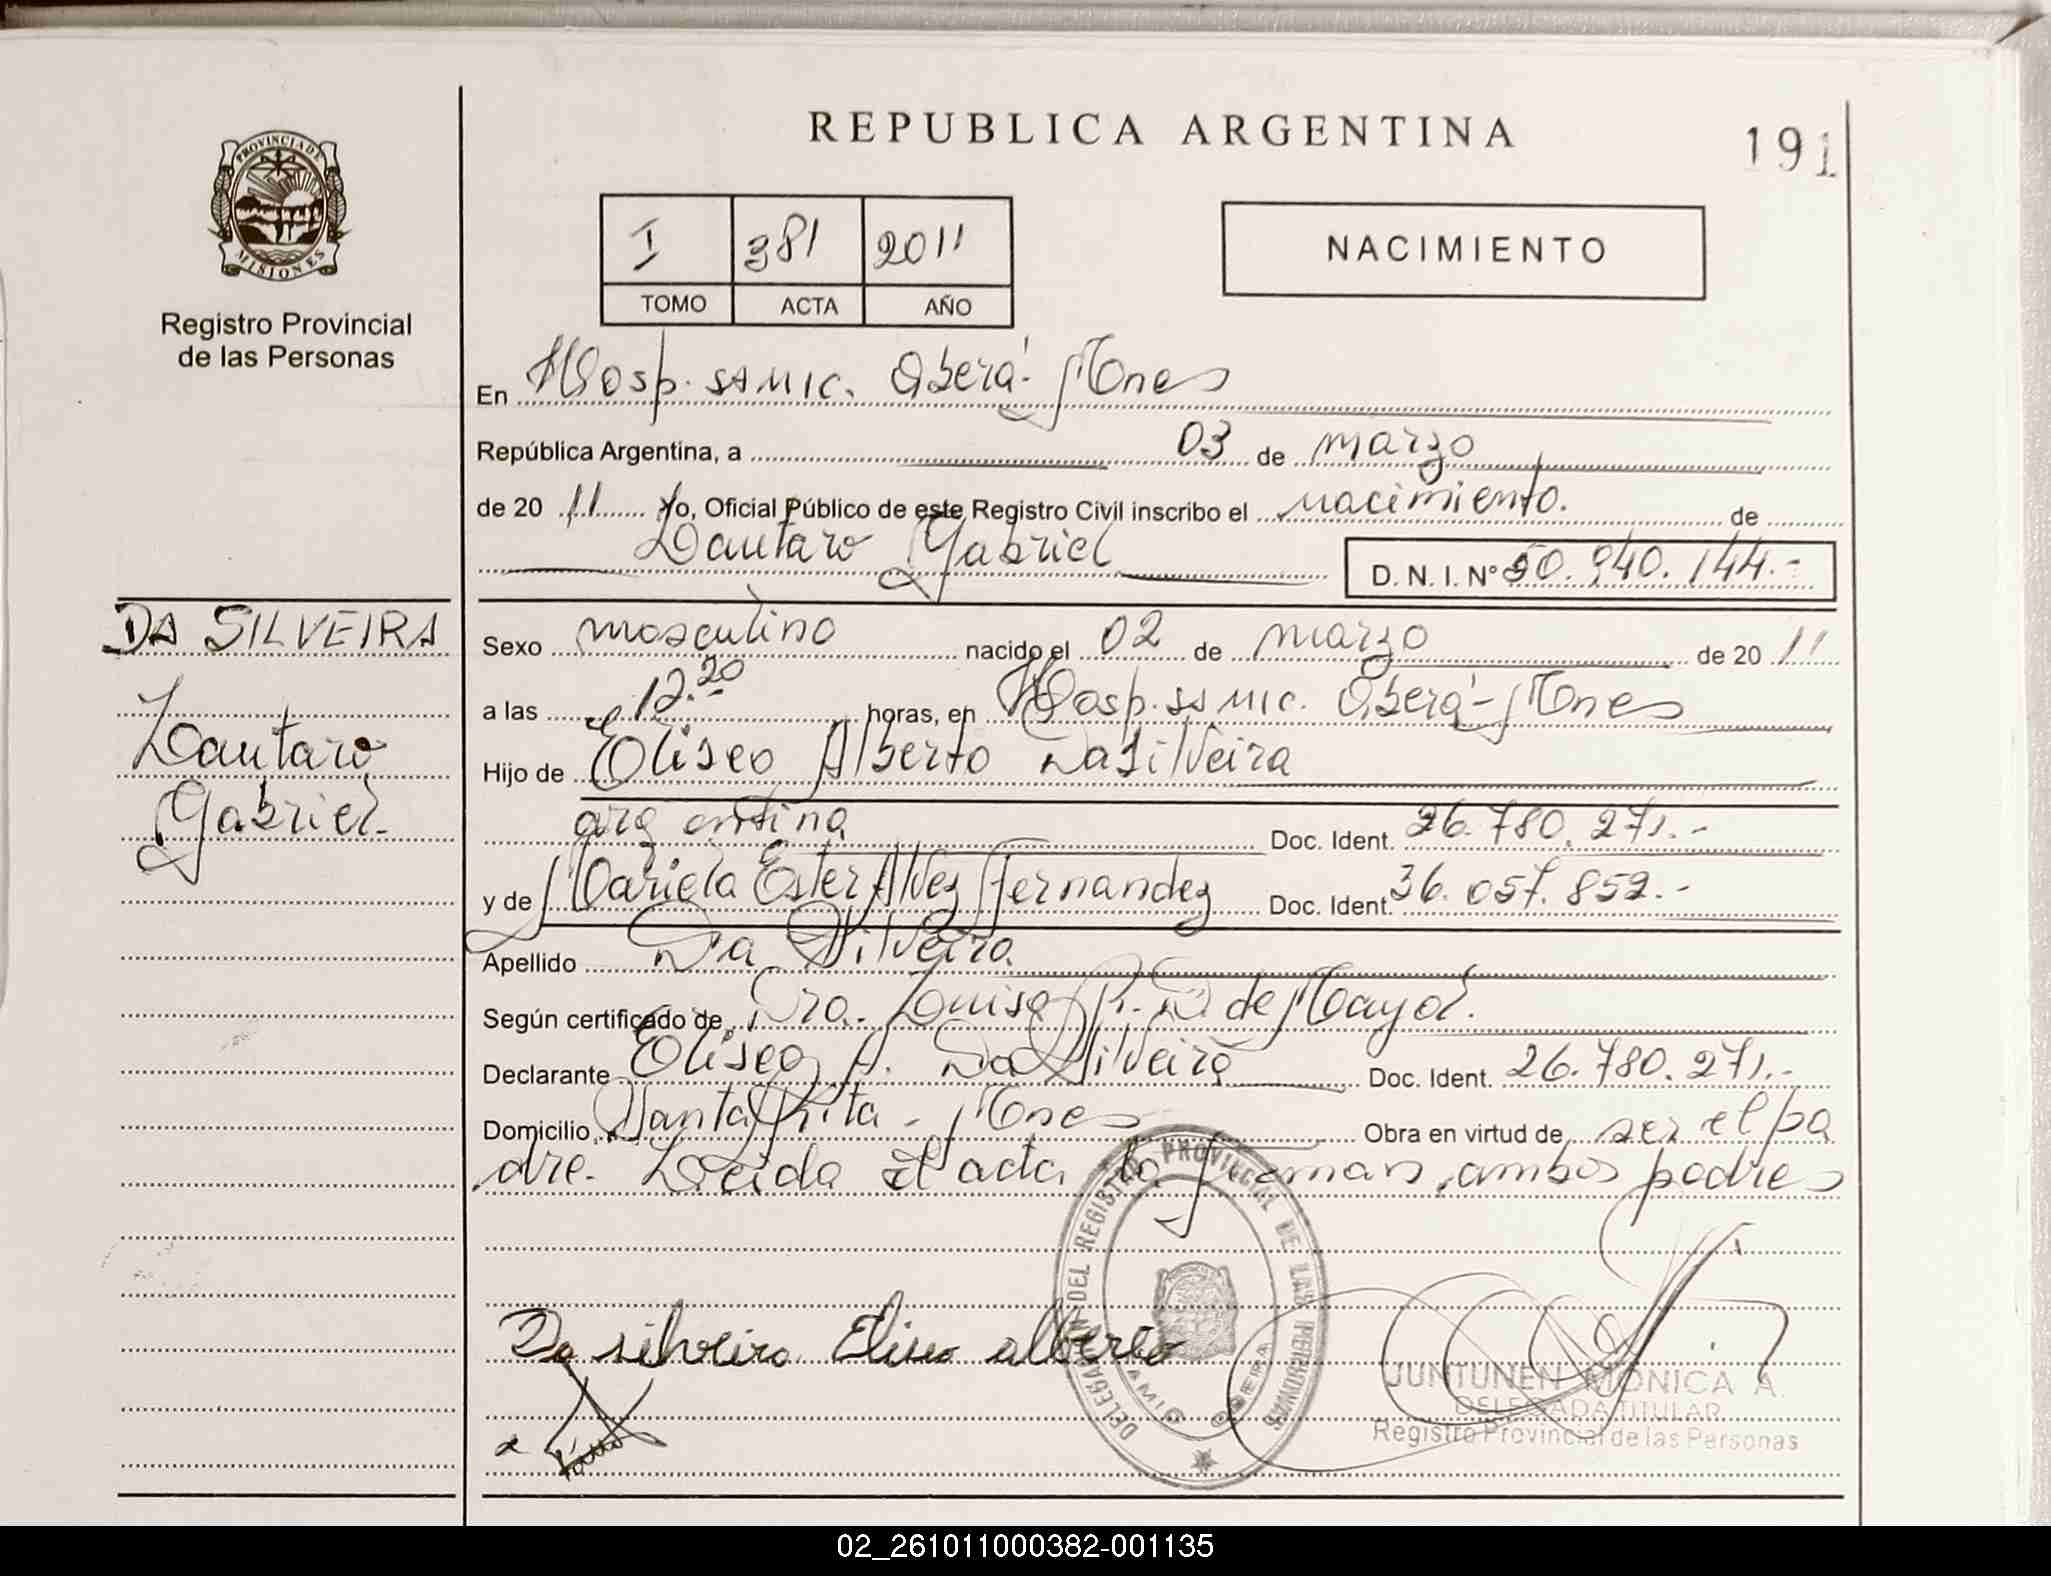 REPUBLICA ARGENTINA
191
PROVINCIA DE
MISIONES
Registro Provincial
de las Personas
I 381 2011
TOMO ACTA AÑO
NACIMIENTO
En Hosp. SAMIC. Oberá - Mnes
República Argentina, a 03 de marzo
de 20 11 Yo, Oficial Público de este Registro Civil inscribo el nacimiento. de
Lautaro Gabriel D. N. I. Nº 50.940.144.-
DA SILVEIRA
Lautaro
Gabriel.
Sexo masculino nacido el 02 de marzo de 20 11
a las 12.20 horas, en Hosp. SAMIC. Oberá - Mnes
Hijo de Eliseo Alberto Da Silveira
argentina Doc. Ident. 26.780.271.-
y de Mariela Ester Alvez Fernandez Doc. Ident. 36.057.852.-
Apellido Da Silveira
Según certificado de Dra. Luisa R. D de Mayol.
Declarante Eliseo A. Da Silveira Doc. Ident. 26.780.271.-
Domicilio Santa Rita - Mnes Obra en virtud de ser el pa
dre. Leida el acta la firman ambos padres
DELEGACION DEL REGISTRO PROVINCIAL DE LAS PERSONAS
SAMIC OBERA
Da silveira Eliseo alberto
JUNTUNEN MONICA A.
DELEGADA TITULAR
Registro Provincial de las Personas
02_261011000382-001135